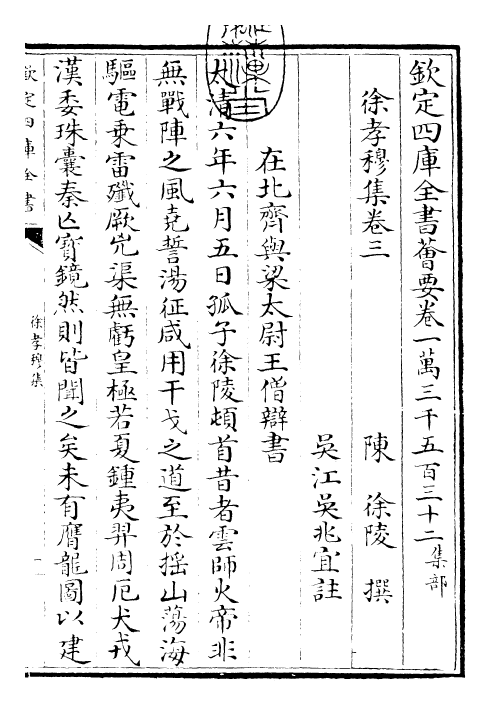 欽定四庫全書薈要卷一萬三千五百三十二集部
徐孝穆集卷三
陳 徐陵 撰
吳江吳兆宜註
在北齊與梁太尉王僧辯書
太清六年六月五日孤子徐陵頓首昔者雲師火帝非
無戰陣之風堯誓湯征咸用干戈之道至於搖山蕩海
驅電乗雷殲厥兇渠無虧皇極若夏鍾夷羿周厄犬戎
漢委珠囊秦亡寳鏡然則皆聞之矣未有膺龍圖以建
欽定四庫全書
徐孝穆集
一